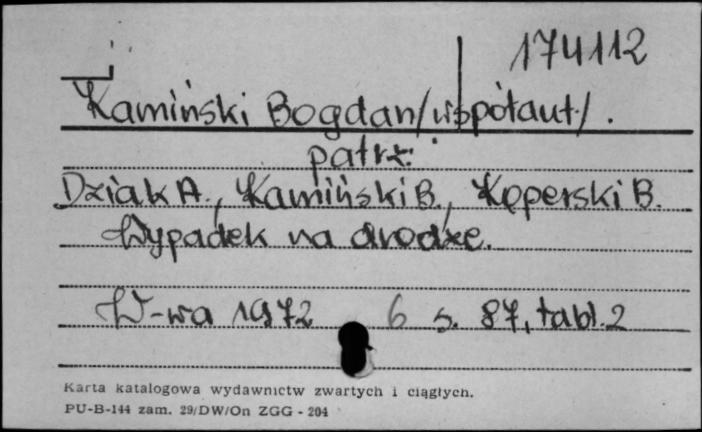 174112
Kamiński Bogdan/współaut/.
patrz:
Dziak A., Kamiński B., Kęperski B.
Wypadek na drodze.
W-wa 1972 6 s. 87, tabl. 2
Karta katalogowa wydawnictw zwartych i ciągłych.
PU-B-144 zam. 29/DW/On ZGG - 204